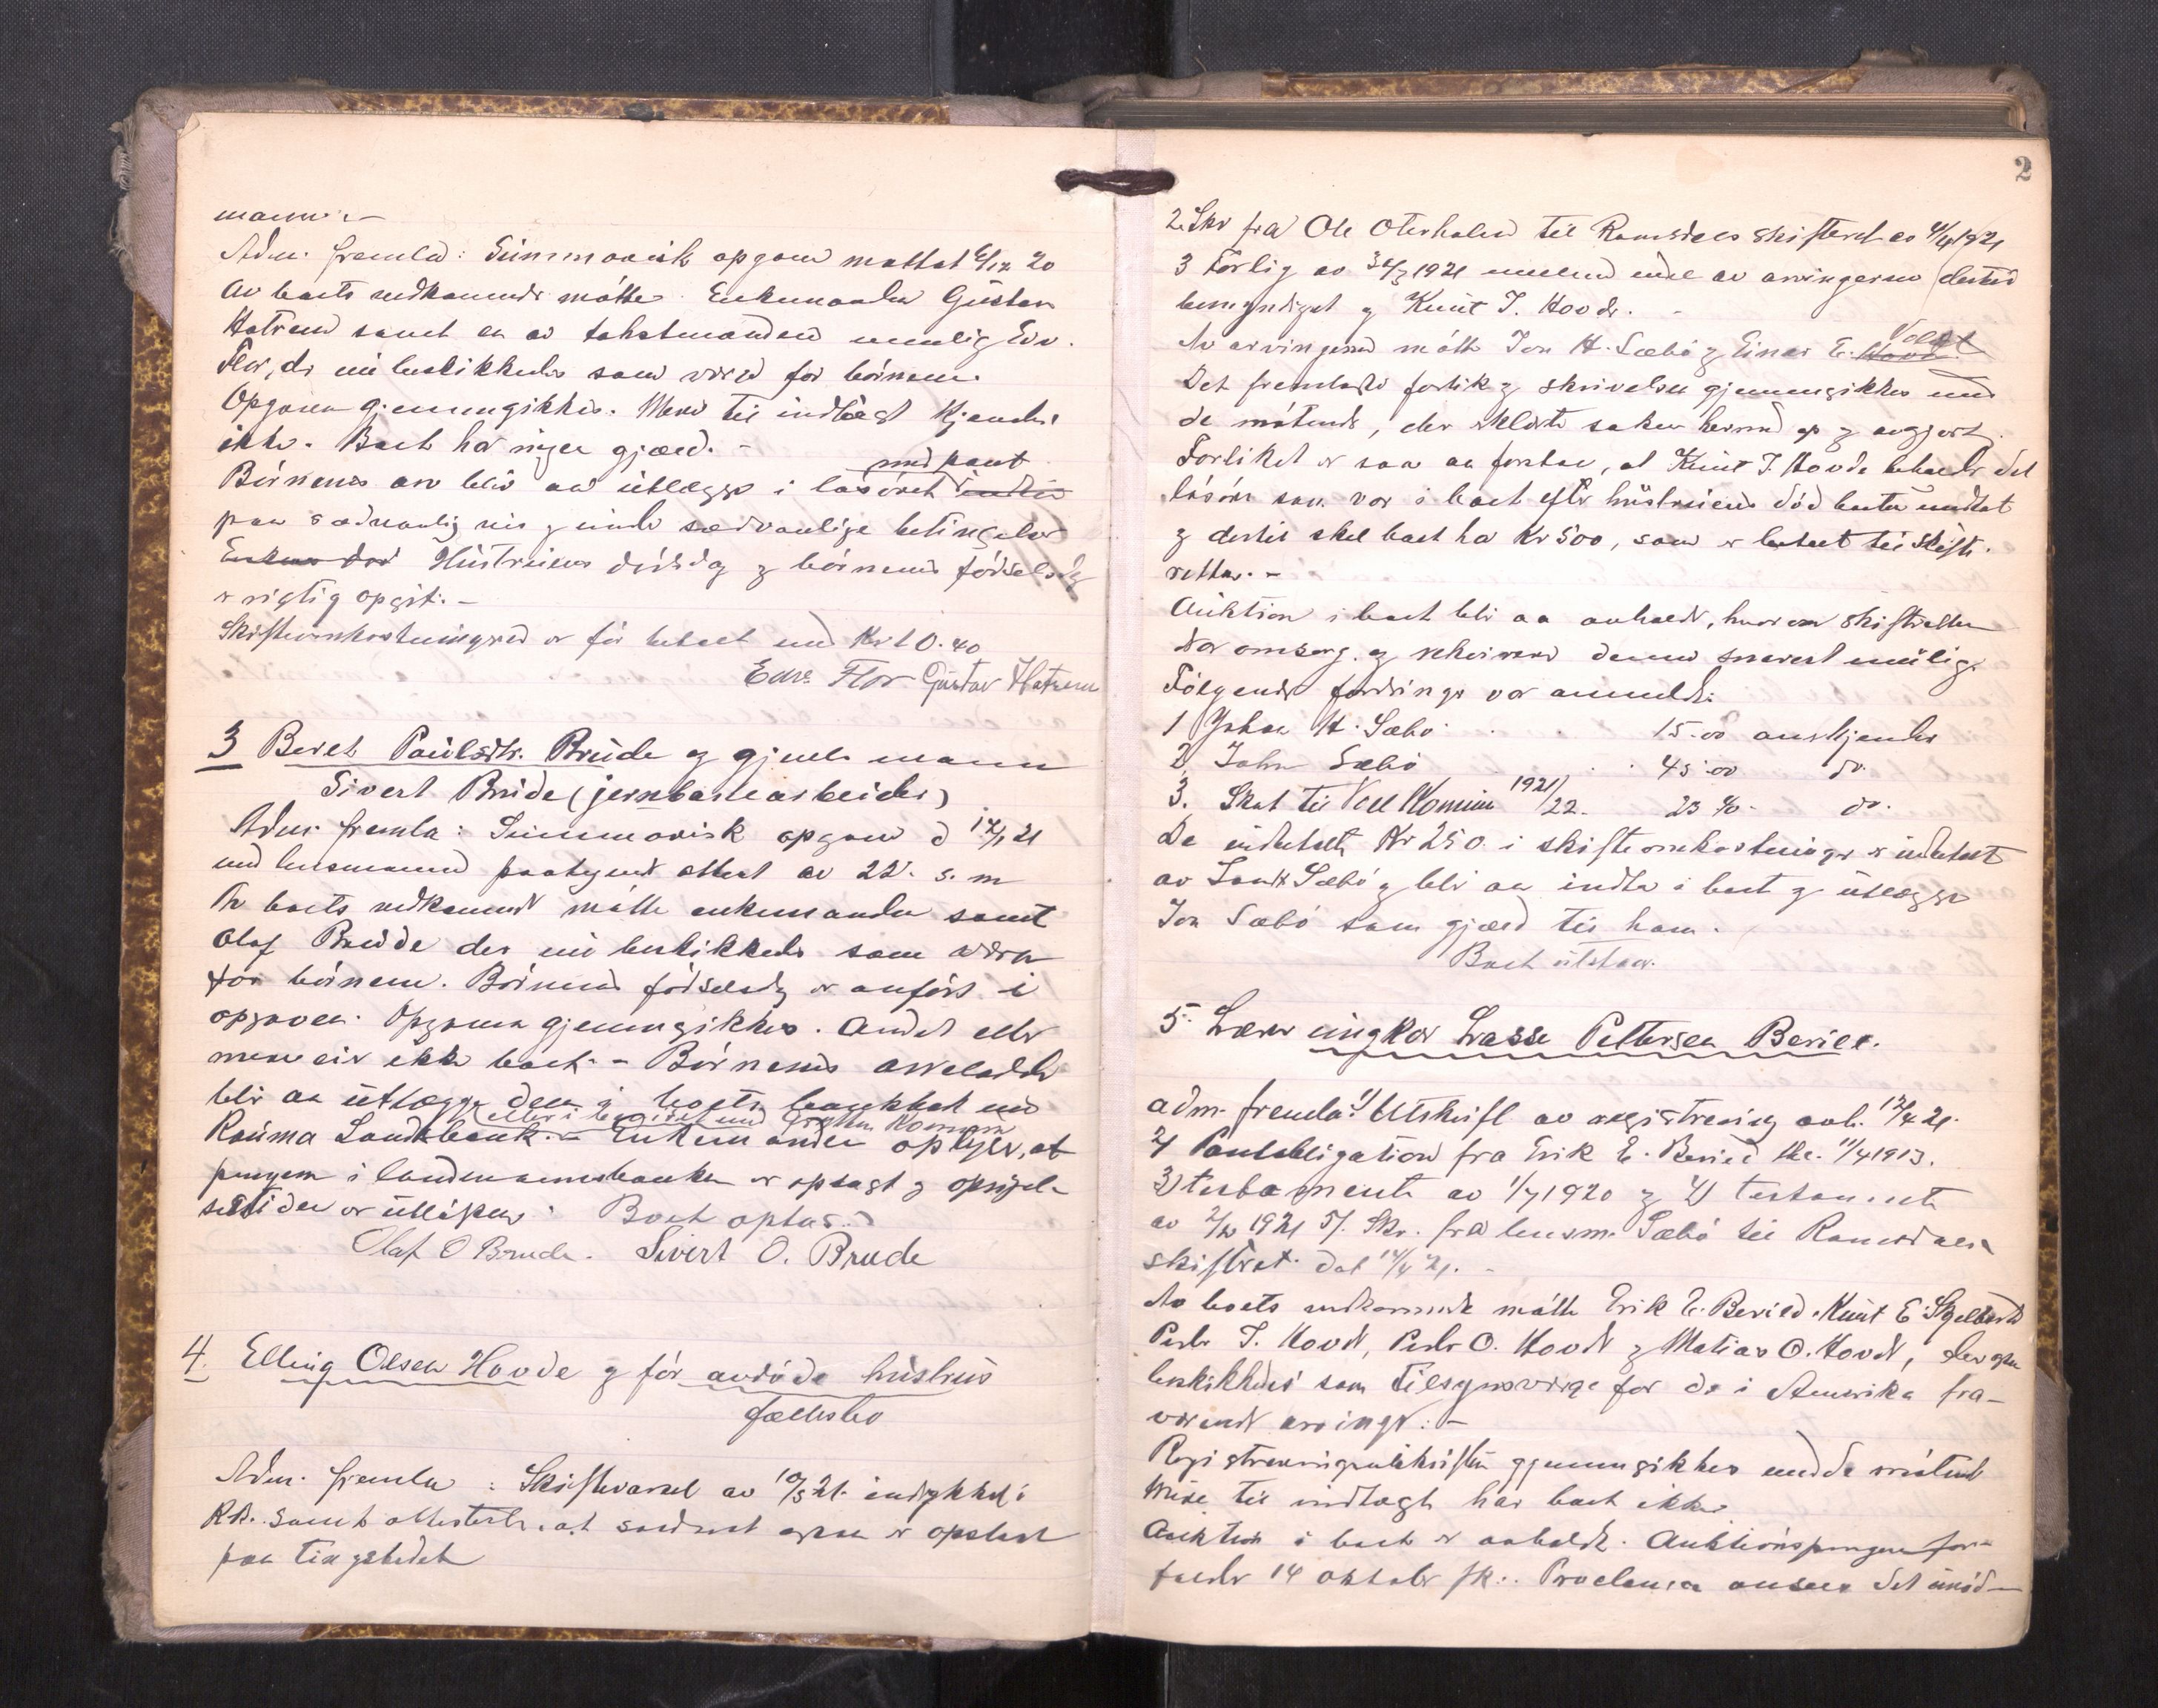 mann.-
Adm. fremla: Summarisk opgave mottat 6/12 20
Av boets vedkommende møtte Enkemanden Gustav
Hatrem samt en av takstmænden nemlig Edv.
Flor, der nu beskikkedes som verge for børnene.
Opgaven gjennemgikkes. Mere til indtægt kjendes
ikke. Boet har ingen gjæld. -
med pant
Børnenes arv blir at utlægge i løsøret
paa sædvanlig vis og under sædvanlige betingelser
Hustruens dødsdag og børnenes fødselsdg
er rigtig opgit.-
Skifteomkostningerne er før betalt med Kr 10.40
Edv. Flor Gustav Hatrem
3 Beret Paulsdtr. Brude og gjenl. mann
Sivert Brude (jernbanearbeider)
Adm. fremla: Summarisk opgave d 21
med lensmannens paategnede attest av 22. s. m
Av boets vedkommende møtte enkemanden samt
Olaf Brude der nu beskikkedes som verge
for børnene. Børnenes fødselsdg er anført i
opgaven. Opgaven gjennemgikkes. Andet eller
mere eier ikke boet. - Børnenes arvelodder
blir at utlægge dem i boets bankbok med
(eller i
Rauma Landsbank. - Enkemanden oplyser, at
pengene i landmannsbanken er opsagt og opsigel-
sestiden er utløpen. Boet optas.
Olaf O Brude. Sivert O. Brude
4. Elling Olsen Hovde og før avdøde hustrus
fællesbo
Adm. fremla: Skiftevarsel av 10/3 21. indrykket i
RA. samt attesterte. at saadant ogsaa er opslaat
paa tingstedet
2
2. Skr fra Ole Oterhalen til Romsdals skifteret av 4/4 1921
3 Forlig av 1921 mellem endel av arvingerne (dertil
bemyndiget og Knut J. Hovde. -
Av arvingerne møtte Jon H. Sæbø og Einar E. Voldt
Det fremlagte forlik og skrivelsen gjennemgikkes med
de møtende, der erklærte saken hermed op og avgjort.
Forliket er saa at forstaa, at Knut J. Hovde beholder det
løsøre som var i boet efter hustruens død undtat
og dertil skal boet ha Kr 500, som er betalt til Skifte-
retten. -
Auktion i boet blir at avholde, hvorom skifteretten
drar omsorg. og rekvirerer denne snarest mulig.
Følgende fordringer var anmeldt:
1 Johan H. Sæbø . . 15.00 anerkjendes
2, John Sæbø . . 45.00 do.
3. Skat til Vold Komun 1921/22. 23 40 - do.
De indbetalte Kr 250. i skifteomkostninger er indbetalt
av Jon H Sæbø og blir at indta i boet og utlægge
Jon Sæbø som gjæld til ham.
Boet utstaar.
5. Lærer ungkar Lasse Pettersen Berild.
adm. fremla: 1) Utskrift av registrering avh. 12/4 21.
2) Pantobligation fra Erik E. Berild 11/4 1913.
3) testamente av 1/7 1920 og 4) testamente
av 1921 5). Skr. fra lensm. Sæbø til Romsdals
skifteret. dat 14/4 21. -
Av boets vedkommende møtte Erik E. Berild. Knut E.
Peder J. Hovde, Peder O. Hovde og Matias O. Hovde, der ogsaa
beskikkedes som tilsynsverge for de i Amerika fra-
værende arvinger. -
Registreringsutskriften gjennemgikkes med de møtende
Mere til indtægt har boet ikke
Auktion i boet er avholdt. Auktionspengene for-
falder 14 oktober fk.. Proclama ansees det unød-